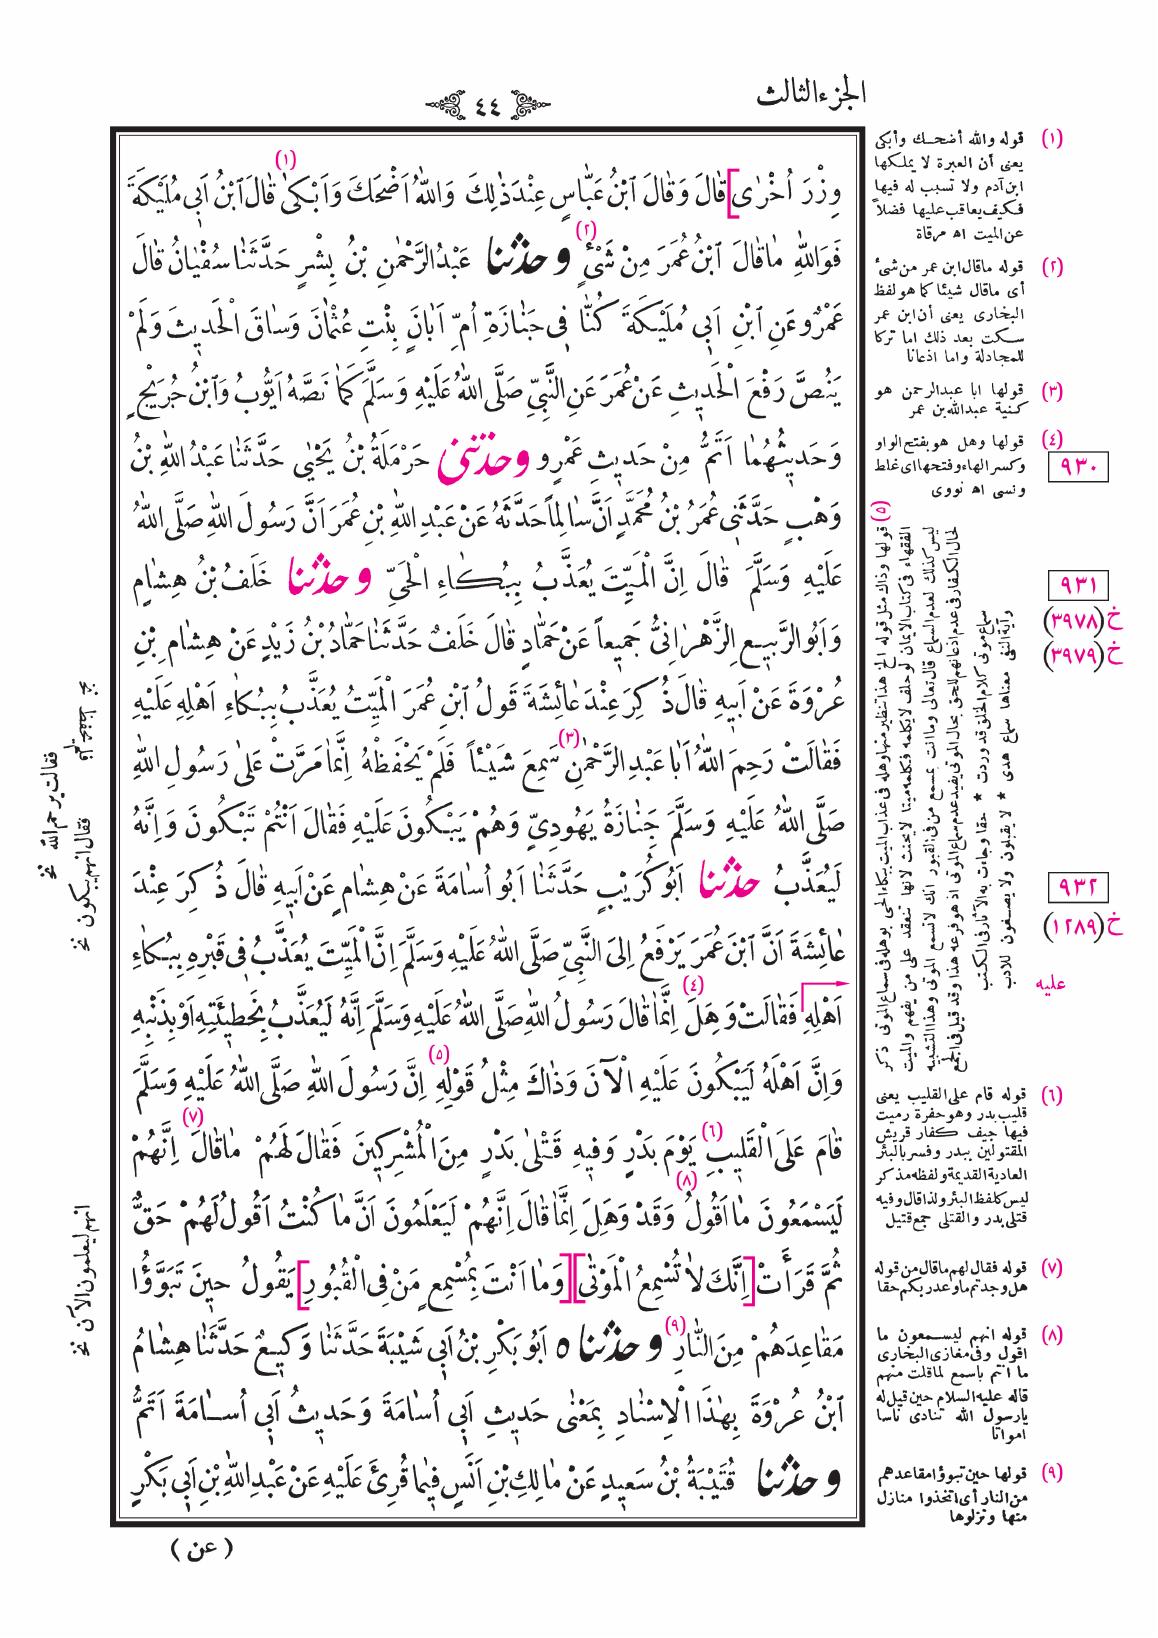 الجزء الثالث
٤٤
وِزْرَ اُخْرٰى] قَالَ وَقَالَ ابْنُ عَبَّاسٍ عِنْدَ ذٰلِكَ وَاللهُ اَضْحَكَ وَاَبْكٰى (١) قَالَ ابْنُ اَبِى مُلَيْكَةَ
فَوَاللهِ مَا قَالَ ابْنُ عُمَرَ مِنْ شَىْءٍ (٢) وحدثنا عَبْدُ الرَّحْمٰنِ بْنُ بِشْرٍ حَدَّثَنَا سُفْيَانُ قَالَ
عَمْرٌو عَنِ ابْنِ اَبِى مُلَيْكَةَ كُنَّا فِى جَنَازَةِ اُمِّ اَبَانٍ بِنْتِ عُثْمَانَ وَسَاقَ الْحَدِيثَ وَلَمْ
يَنُصَّ رَفْعَ الْحَدِيثِ عَنْ عُمَرَ عَنِ النَّبِىِّ صَلَّى اللهُ عَلَيْهِ وَسَلَّمَ كَمَا نَصَّهُ اَيُّوبُ وَابْنُ جُرَيْجٍ
وَحَدِيثُهُمَا اَتَمُّ مِنْ حَدِيثِ عَمْرٍو وحدثنى حَرْمَلَةُ بْنُ يَحْيٰى حَدَّثَنَا عَبْدُ اللهِ بْنُ
وَهْبٍ حَدَّثَنِى عُمَرُ بْنُ مُحَمَّدٍ اَنَّ سَالِماً حَدَّثَهُ عَنْ عَبْدِ اللهِ بْنِ عُمَرَ اَنَّ رَسُولَ اللهِ صَلَّى اللهُ
عَلَيْهِ وَسَلَّمَ قَالَ اِنَّ الْمَيِّتَ يُعَذَّبُ بِبُكَاءِ الْحَىِّ وحدثنا خَلَفُ بْنُ هِشَامٍ
وَاَبُو الرَّبِيعِ الزَّهْرَانِىُّ جَمِيعاً عَنْ حَمَّادٍ قَالَ خَلَفٌ حَدَّثَنَا حَمَّادُ بْنُ زَيْدٍ عَنْ هِشَامِ بْنِ
عُرْوَةَ عَنْ اَبِيهِ قَالَ ذُكِرَ عِنْدَ عَائِشَةَ قَوْلُ ابْنِ عُمَرَ الْمَيِّتُ يُعَذَّبُ بِبُكَاءِ اَهْلِهِ عَلَيْهِ
فَقَالَتْ رَحِمَ اللهُ اَبَا عَبْدِ الرَّحْمٰنِ (٣) سَمِعَ شَيْئاً فَلَمْ يَحْفَظْهُ اِنَّمَا مَرَّتْ عَلٰى رَسُولِ اللهِ
صَلَّى اللهُ عَلَيْهِ وَسَلَّمَ جَنَازَةُ يَهُودِىٍّ وَهُمْ يَبْكُونَ عَلَيْهِ فَقَالَ اَنْتُمْ تَبْكُونَ وَاِنَّهُ
لَيُعَذَّبُ حدثنا اَبُو كُرَيْبٍ حَدَّثَنَا اَبُو اُسَامَةَ عَنْ هِشَامٍ عَنْ اَبِيهِ قَالَ ذُكِرَ عِنْدَ
عَائِشَةَ اَنَّ ابْنَ عُمَرَ يَرْفَعُ اِلَى النَّبِىِّ صَلَّى اللهُ عَلَيْهِ وَسَلَّمَ اِنَّ الْمَيِّتَ يُعَذَّبُ فِى قَبْرِهِ بِبُكَاءِ
اَهْلِهِ فَقَالَتْ وَهِلَ (٤) اِنَّمَا قَالَ رَسُولُ اللهِ صَلَّى اللهُ عَلَيْهِ وَسَلَّمَ اِنَّهُ لَيُعَذَّبُ بِخَطِيئَتِهِ اَوْ بِذَنْبِهِ
وَاِنَّ اَهْلَهُ لَيَبْكُونَ عَلَيْهِ الْآنَ وَذَاكَ مِثْلُ قَوْلِهِ (٥) اِنَّ رَسُولَ اللهِ صَلَّى اللهُ عَلَيْهِ وَسَلَّمَ
قَامَ عَلَى الْقَلِيبِ (٦) يَوْمَ بَدْرٍ وَفِيهِ قَتْلٰى بَدْرٍ مِنَ الْمُشْرِكِينَ فَقَالَ لَهُمْ مَا قَالَ (٧) اِنَّهُمْ
لَيَسْمَعُونَ مَا اَقُولُ (٨) وَقَدْ وَهِلَ اِنَّمَا قَالَ اِنَّهُمْ لَيَعْلَمُونَ اَنَّ مَا كُنْتُ اَقُولُ لَهُمْ حَقٌّ
ثُمَّ قَرَأَتْ [اِنَّكَ لَا تُسْمِعُ الْمَوْتٰى] [وَمَا اَنْتَ بِمُسْمِعٍ مَنْ فِى الْقُبُورِ] يَقُولُ حِينَ تَبَوَّؤُا
مَقَاعِدَهُمْ مِنَ النَّارِ (٩) وحدثناه اَبُو بَكْرِ بْنُ اَبِى شَيْبَةَ حَدَّثَنَا وَكِيعٌ حَدَّثَنَا هِشَامُ
ابْنُ عُرْوَةَ بِهٰذَا الْاِسْنَادِ بِمَعْنٰى حَدِيثِ اَبِى اُسَامَةَ وَحَدِيثُ اَبِى اُسَامَةَ اَتَمُّ
وحدثنا قُتَيْبَةُ بْنُ سَعِيدٍ عَنْ مَالِكِ بْنِ اَنَسٍ فِيمَا قُرِئَ عَلَيْهِ عَنْ عَبْدِ اللهِ بْنِ اَبِى بَكْرٍ
( عن )
(١) قوله والله أضحك وأبكى
يعنى أن العبرة لا يملكها
ابن آدم ولا تسبب له فيها
فكيف يعاقب عليها فضلاً
عن الميت اه مرقاة
(٢) قوله ماقال ابن عمر من شىء
أى ماقال شيئا كما هو لفظ
البخارى يعنى أن ابن عمر
سكت بعد ذلك اما تركا
للمجادلة واما اذعانا
(٣) قولها ابا عبدالرحمن هو
كنية عبدالله بن عمر
(٤) قولها وهل هو بفتح الواو
وكسر الهاء وفتحها اى غلط
ونسى اه نووى
٩٣٠
٩٣١
خ (٣٩٧٨)
خ (٣٩٧٩)
٩٣٢
خ (١٢٨٩)
عليه
(٥) قولها وذاك مثل قوله الخ هذا تنظير منها وهله فى عذاب الميت ببكاء الحى بوهله فى سماع الموتى ذكر
الفقهاء فى كتاب الايمان لو حلف لايكلمه فكلمه ميتا لا يحنث لانها تنعقد على من يفهم والميت
ليس كذلك لعدم السماع قال تعالى وما انت بمسمع من فى القبور انك لا تسمع الموتى وهذا التشبيه
لحال الكفار فى عدم اذعانهم للحق بحال الموتى يفيد عدم سماع الموتى اذ هو فرعه هذا وقد قيل فى الجمع
سماع موتى كلام الخلق قد وردت * حقا وجاءت به الآثار فى الكتب
وآية النفى معناها سماع هدى * لا يقبلون ولا يصغون للادب
(٦) قوله قام على القليب يعنى
قليب بدر وهو حفرة رميت
فيها جيف كفار قريش
المقتولين ببدر وفسر بالبئر
العادية القديمة ولفظه مذكر
ليس كلفظ البئر ولذا قال وفيه
قتلى بدر والقتلى جمع قتيل
(٧) قوله فقال لهم ماقال من قوله
هل وجدتم ما وعد ربكم حقا
(٨) قوله انهم ليسمعون ما
اقول وفى مغازى البخارى
ما انتم باسمع لما قلت منهم
قاله عليه السلام حين قيل له
يارسول الله تنادى ناسا
امواتا
(٩) قولها حين تبوؤا مقاعدهم
من النار أى اتخذوا منازل
منها ونزلوها
فقالت يرحم الله نخ
فقال انهم يبكون نخ
انهم ليعلمون الآن نخ